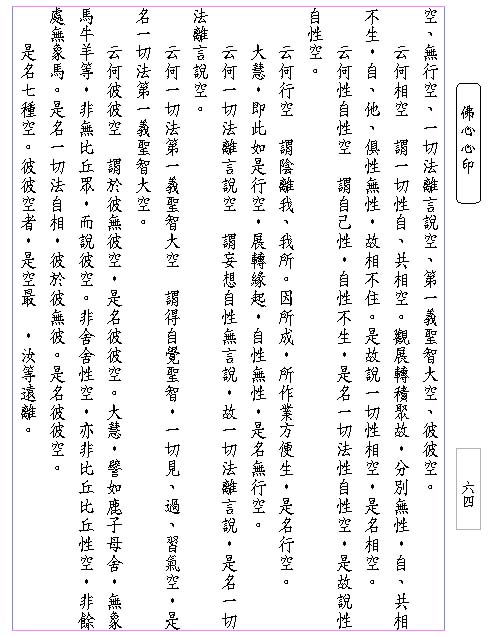 空、無行空、一切法離言說空、第一義聖智大空、彼彼空。
云何相空　謂一切性自、共相空。觀展轉積聚故，分別無性，自、共相
不生，自、他、俱性無性，故相不住。是故說一切性相空，是名相空。
云何性自性空　謂自己性，自性不生，是名一切法性自性空，是故說性
自性空。
云何行空　謂陰離我、我所。因所成，所作業方便生，是名行空。
大慧，即此如是行空，展轉緣起，自性無性，是名無行空。
云何一切法離言說空　謂妄想自性無言說，故一切法離言說，是名一切
法離言說空。
云何一切法第一義聖智大空　謂得自覺聖智，一切見、過、習氣空，是
名一切法第一義聖智大空。
云何彼彼空　謂於彼無彼空，是名彼彼空。大慧，譬如鹿子母舍，無象
馬牛羊等，非無比丘眾，而說彼空。非舍舍性空，亦非比丘比丘性空，非餘
處無象馬。是名一切法自相，彼於彼無彼。是名彼彼空。
是名七種空。彼彼空者，是空最　，汝等遠離。
佛心心印
六四